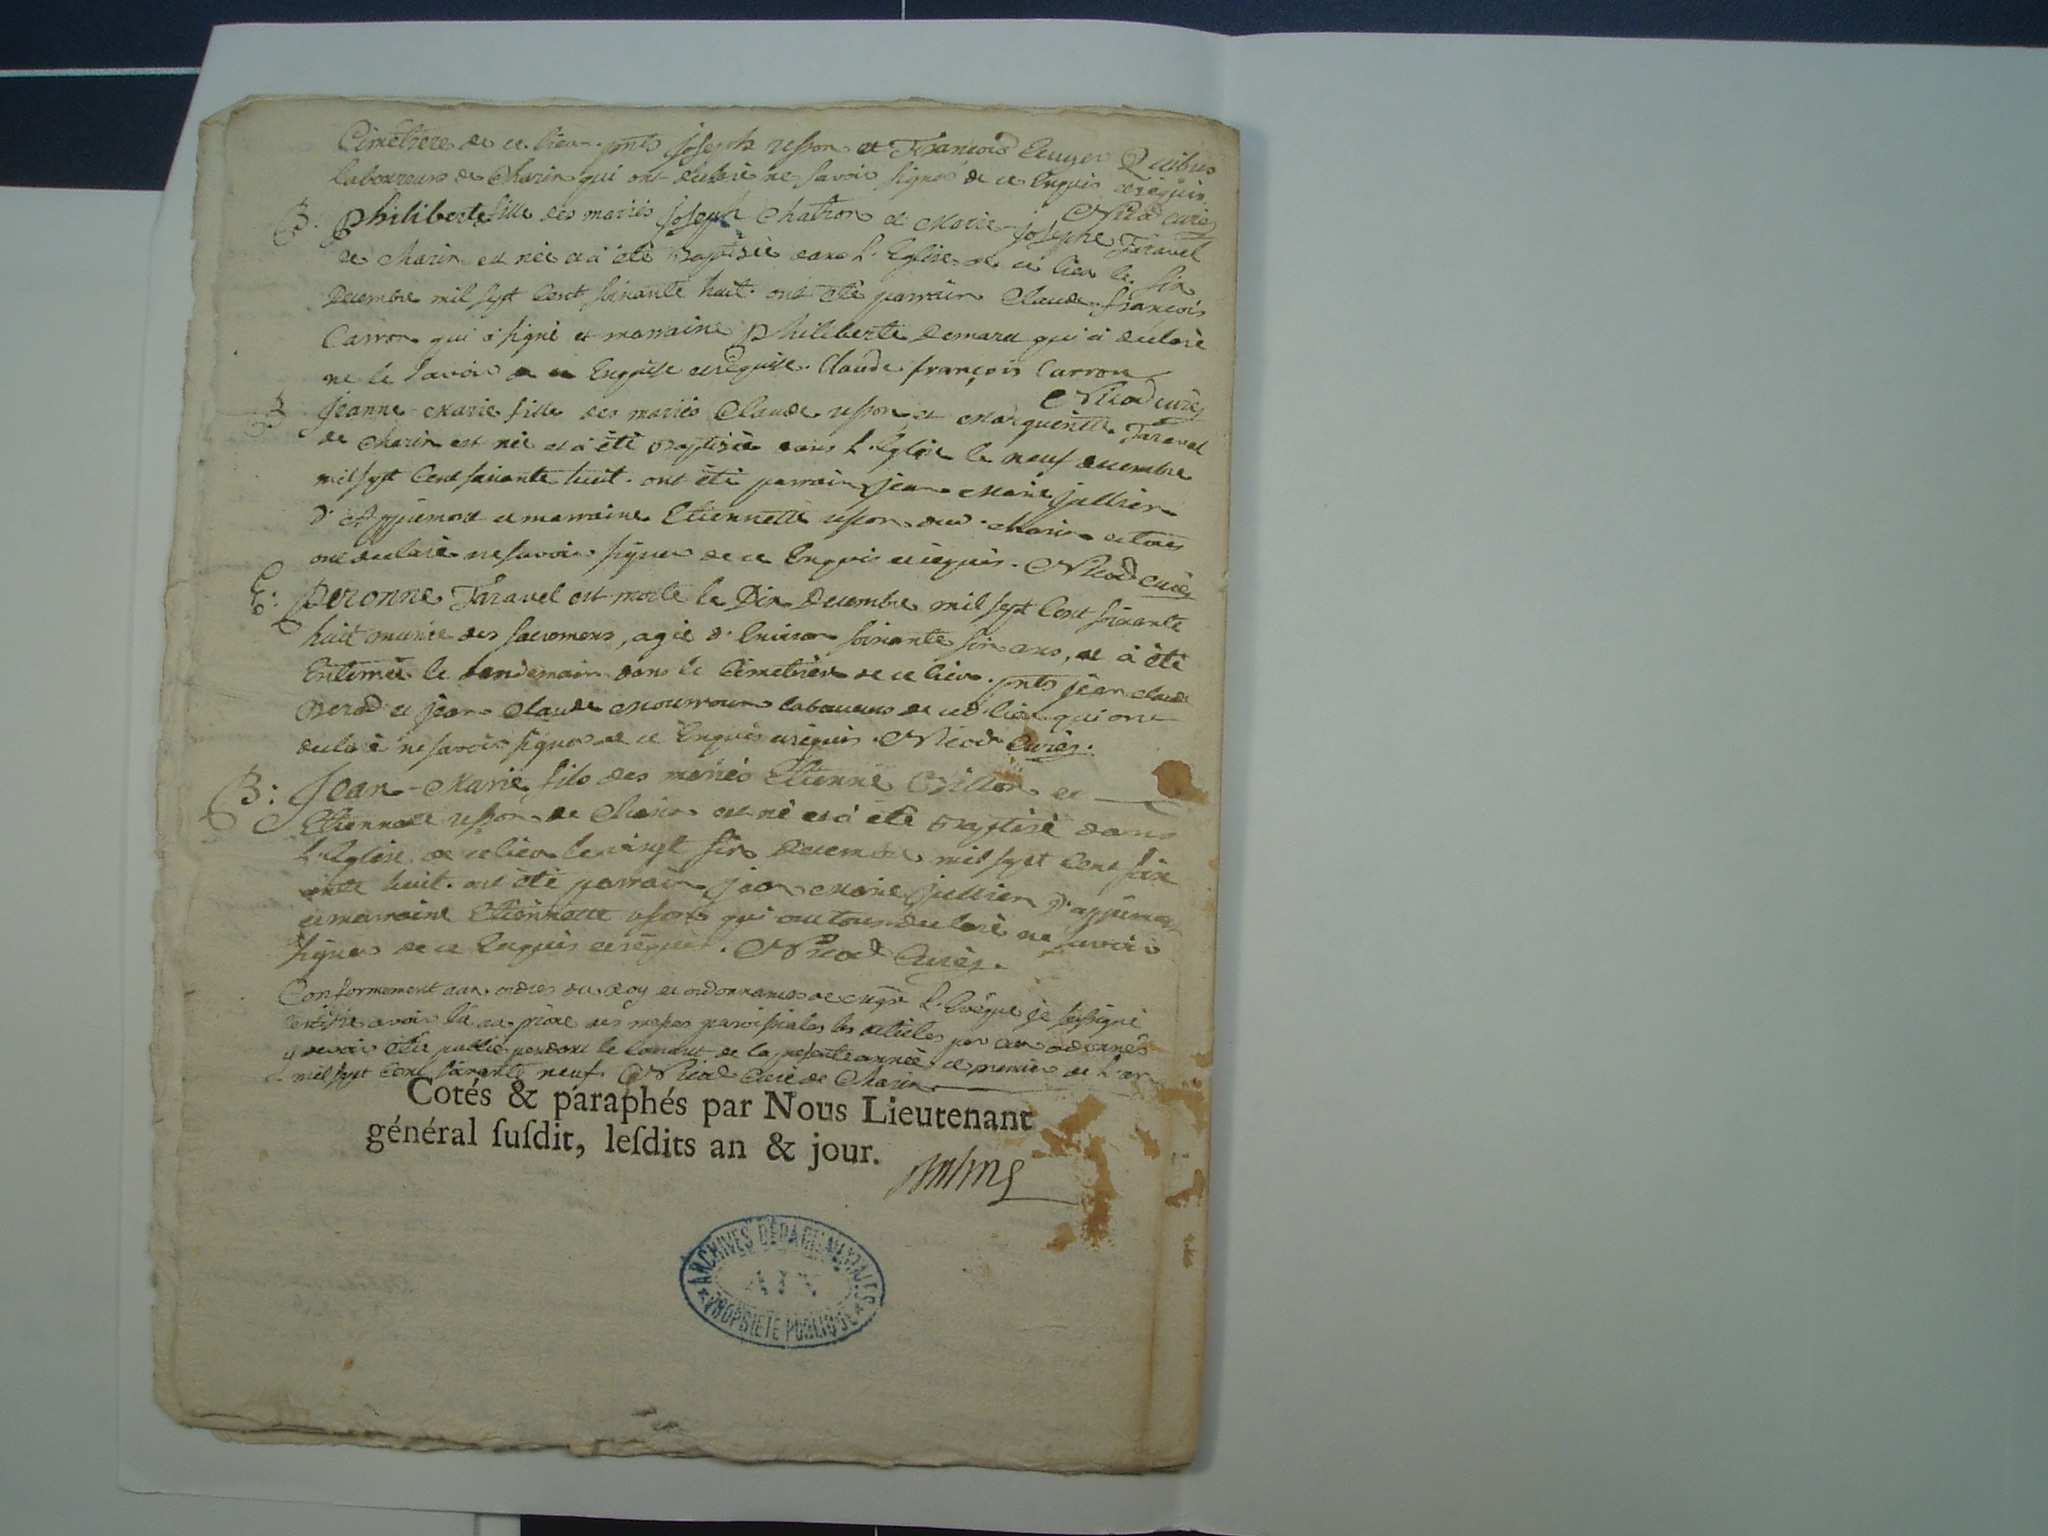 Cimetiere de ce lieu. pnts joseph uffon et François Ecuyer
laboureurs de Charix qui ont declaré ne savoir signer de ce Enquis et requis
Nicod curé
B: Philiberte fille des mariés joseph Chatron et Marie-josephe Taravel
de Charix est née et à été Baptisée dans L'Eglise de ce lieu le six
Decembre mil sept Cent soixante huit. ont été parrain Claude-françois
Carron qui à signé et marraine Philiberte Demaru qui à declaré
ne le savoir de ce Enquise et requise. Claude françois Carron
Nicod curé
B Jeanne-Marie fille des mariés Claude uffon et Margueritte Taravel
de Charix est née et à été Baptisée dans L'Eglise le neuf decembre
mil sept Cent soixante huit. ont été parrain jean Marie jullien
d'Appremont et marraine Etiennette uffon dud. Charix et tous
ont declaré ne savoir signer de ce Enquis et requis. Nicod Curé
E: Peronne Taravel est morte le Dix Decembre mil sept Cent soixante
huit munie des sacremens, agée d'Environ soixante six ans, et à été
Enterrée le landemain dans le Cimetiere de ce lieu. pnts jean claude
Berod et jean Claude Mourroux laboureurs de ced. lieu qui ont
declaré ne savoir signer de ce Enquis et requis. Nicod Curé.
B: Jean-Marie fils des mariés Etienne Billon et
Etiennette uffon de Charix est né et à été Baptisé dans
L'Eglise de ce lieu le vingt six Decembre mil sept Cent soix
ante huit. ont été parrain jean Marie jullien d'appremont
et marraine Etiennette uffon qui ont tous declaré ne savoir
signer de ce Enquis et requis. Nicod Curé.
Conformement aux ordres du Roy et ordonnances de Mgr L'Evêque je soussigné
certifie avoir lû au prône des messes paroissiales les articles par eux ordonnés
y devoir être publié pendant le courant de la presente année ce premier de L'an
mil sept Cent soixante neuf. Nicod Curé de Charix
Cotés & paraphés par Nous Lieutenant
général susdit, lesdits an & jour.
ARCHIVES DÉPARTEMENTALES
AIN
PROPRIÉTÉ PUBLIQUE